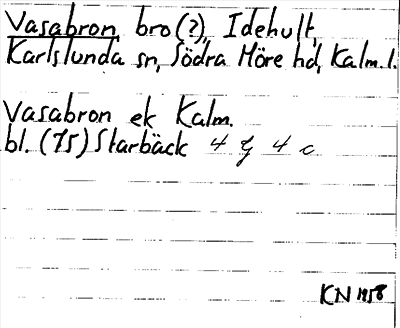 Vasabron, bro(?), Idehult,
Karlslunda sn, Södra Möre hd, Kalm.l.
Vasabron ek Kalm.
bl. (75) Starbäck 4 g 4 c
KN 1958